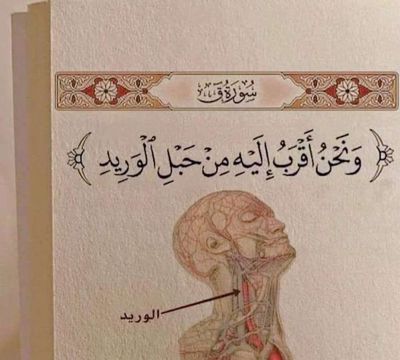 سُورَةُ قٓ
وَنَحْنُ أَقْرَبُ إِلَيْهِ مِنْ حَبْلِ الْوَرِيدِ
الوريد